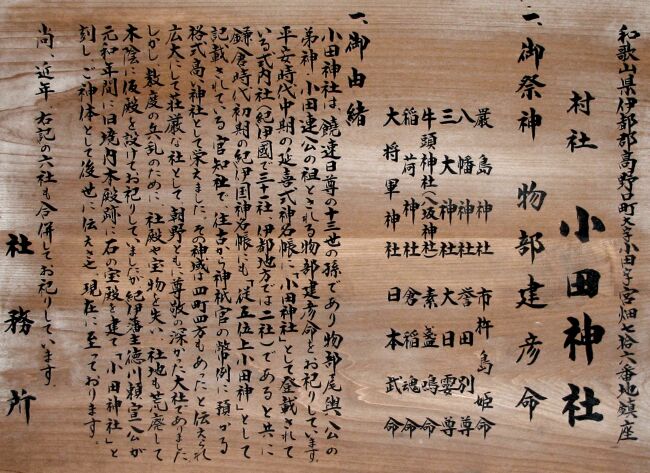 和歌山県伊都郡高野口町大字小田字宮畑七拾六番地鎮座
村社 小田神社
一、御祭神 物部建彦命
厳島神社 市杵島姫命
八幡神社 誉田別尊
三大神社 大日孁尊
牛頭神社(八坂神社) 素盞嗚命
稲荷神社 倉稲魂命
大将軍神社 日本武命
一、御由緒
小田神社は、饒速日尊の十三世の孫であり物部尾輿公の
弟神 小田連公の祖とされる物部建彦命をお祀りしています。
平安時代中期の延喜式神名帳に、「小田神社」として登載されて
いる式内社(紀伊國で三十一社 伊都地方では二社)であると共に
鎌倉時代初期の紀伊国神名帳にも、「従五位上小田神」として
記載されている官知社で 往古から神祇官の幣例に預かる
格式高い神社として栄えました。その神域は四町四方もあったと伝えられ
広大にして荘厳な社として 朝野ともに尊敬の深かった大社でありました
しかし 数度の兵乱のために、社殿や宝物を失い 社地も荒廃して
木陰に仮殿を設けてお祀りしていましたが 紀伊藩主徳川頼宣公が
元和年間に旧境内本殿跡に石の宝殿を建て「小田神社」と
刻しご神体として後世に伝えさせ 現在に至っております。
尚、近年 右記の六社も合併してお祀りしています。
社務所